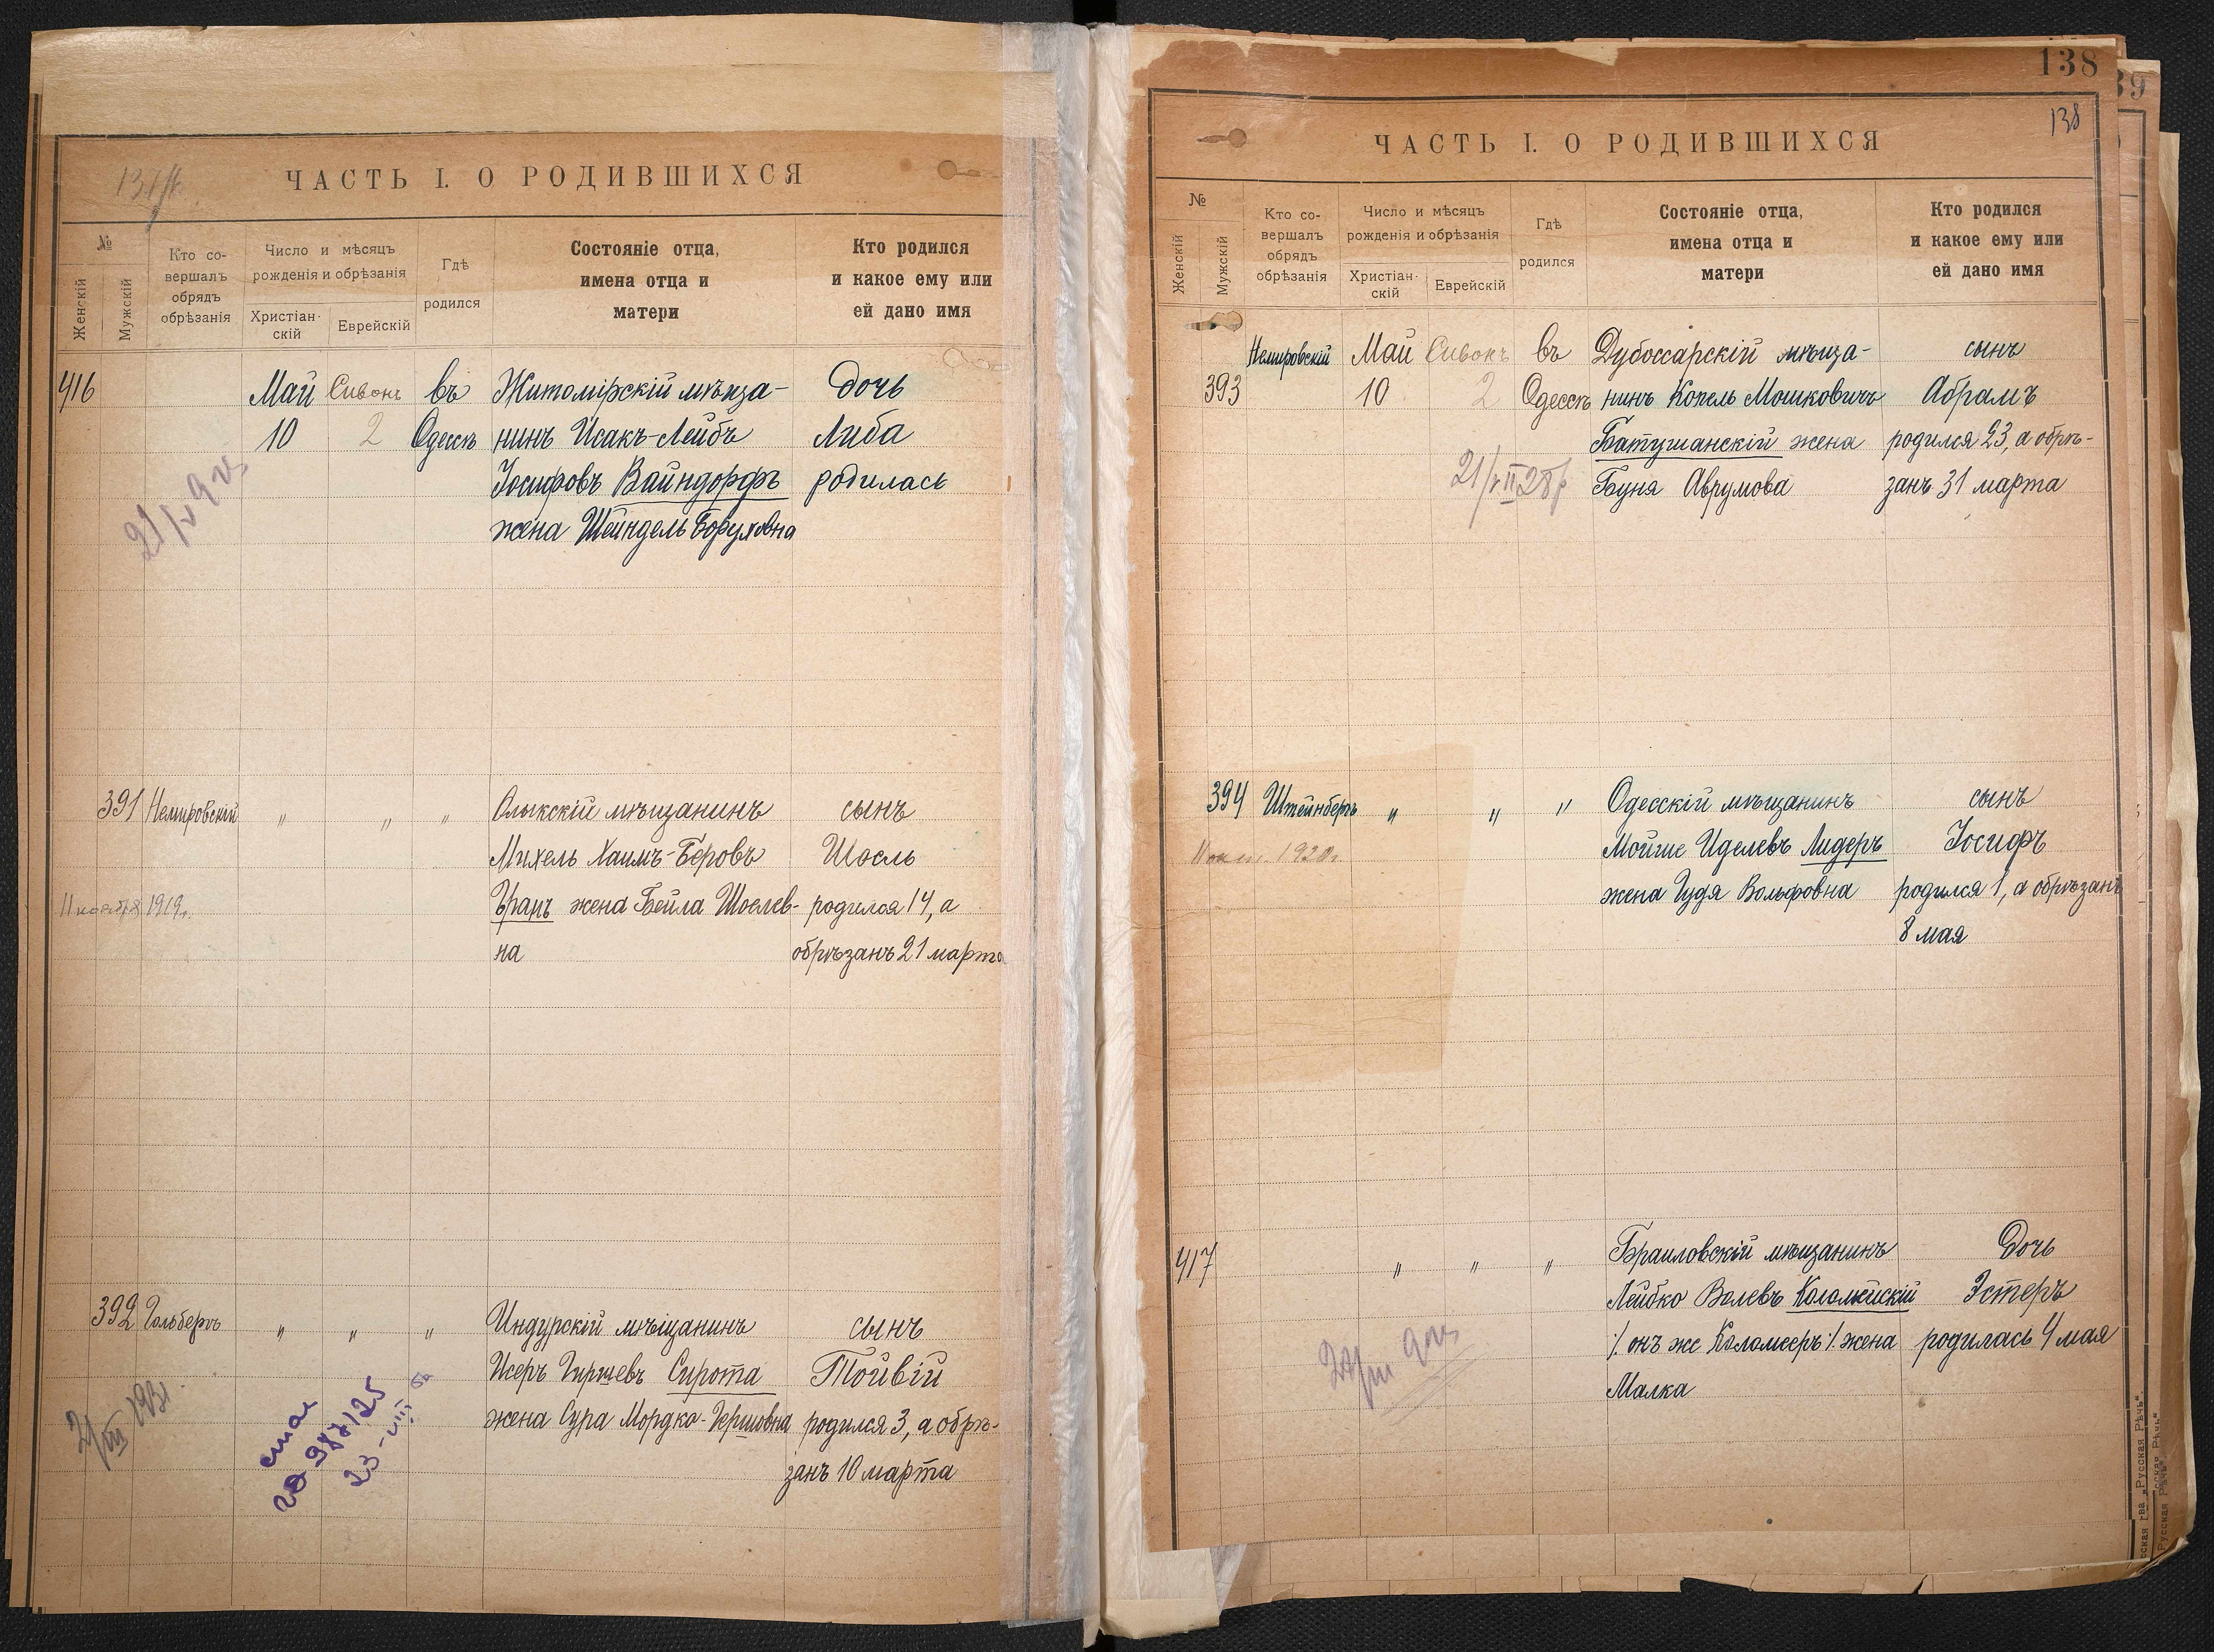 ЧАСТЬ I. О РОДИВШИХСЯ
№
Женскій
Мужскій
Кто со-
вершалъ
обрядъ
обрѣзанія
Число и мѣсяцъ
рожденія и обрѣзанія
Христіан-
скій
Еврейскій
Гдѣ
родился
Состояніе отца,
имена отца и
матери
Кто родился
и какое ему или
ей дано имя
416
Май
10
Сивонъ
2
въ
Одессѣ
Житомірскій мѣща-
нинъ Исакъ-Лейбъ
Іосифовъ Вайндорфъ
жена Шейндель Боруховна
дочь
Либа
родилась
391
Немировскій
"
"
"
Олыкскій мѣщанинъ
Михель Хаимъ-Беровъ
жена Бейла Шоелев-
на
сынъ
Шоель
родился 14, а
обрѣзанъ 21 марта
11 ноября 1919г.
392
Гольбергъ
"
"
"
Индурскій мѣщанинъ
Исеръ Гиршевъ Сирота
жена Сура Мордко-Гершовна
сынъ
Тойвій
родился 3, а обрѣ-
занъ 10 марта
138
138
ЧАСТЬ I. О РОДИВШИХСЯ
№
Женскій
Мужскій
Кто со-
вершалъ
обрядъ
обрѣзанія
Число и мѣсяцъ
рожденія и обрѣзанія
Христіан-
скій
Еврейскій
Гдѣ
родился
Состояніе отца,
имена отца и
матери
Кто родился
и какое ему или
ей дано имя
393
Немировскій
Май
10
Сивонъ
2
въ
Одессѣ
Дубоссарскій мѣща-
нинъ Копель Мошковичъ
Батушанскій жена
Буня Аврумова
сынъ
Абрамъ
родился 23, а обрѣ-
занъ 31 марта
394
Штейнбергъ
"
"
"
Одесскій мѣщанинъ
Мойше Иделевъ Лидеръ
жена Гудя Вольфовна
сынъ
Іосифъ
родился 1, а обрѣзанъ
8 мая
417
"
"
"
Браиловскій мѣщанинъ
Лейбко Волевъ Коломейскій
/. онъ же Коломееръ ./. жена
Малка
Дочь
Эстеръ
родилась 4 мая
„Русская Рѣчь“.